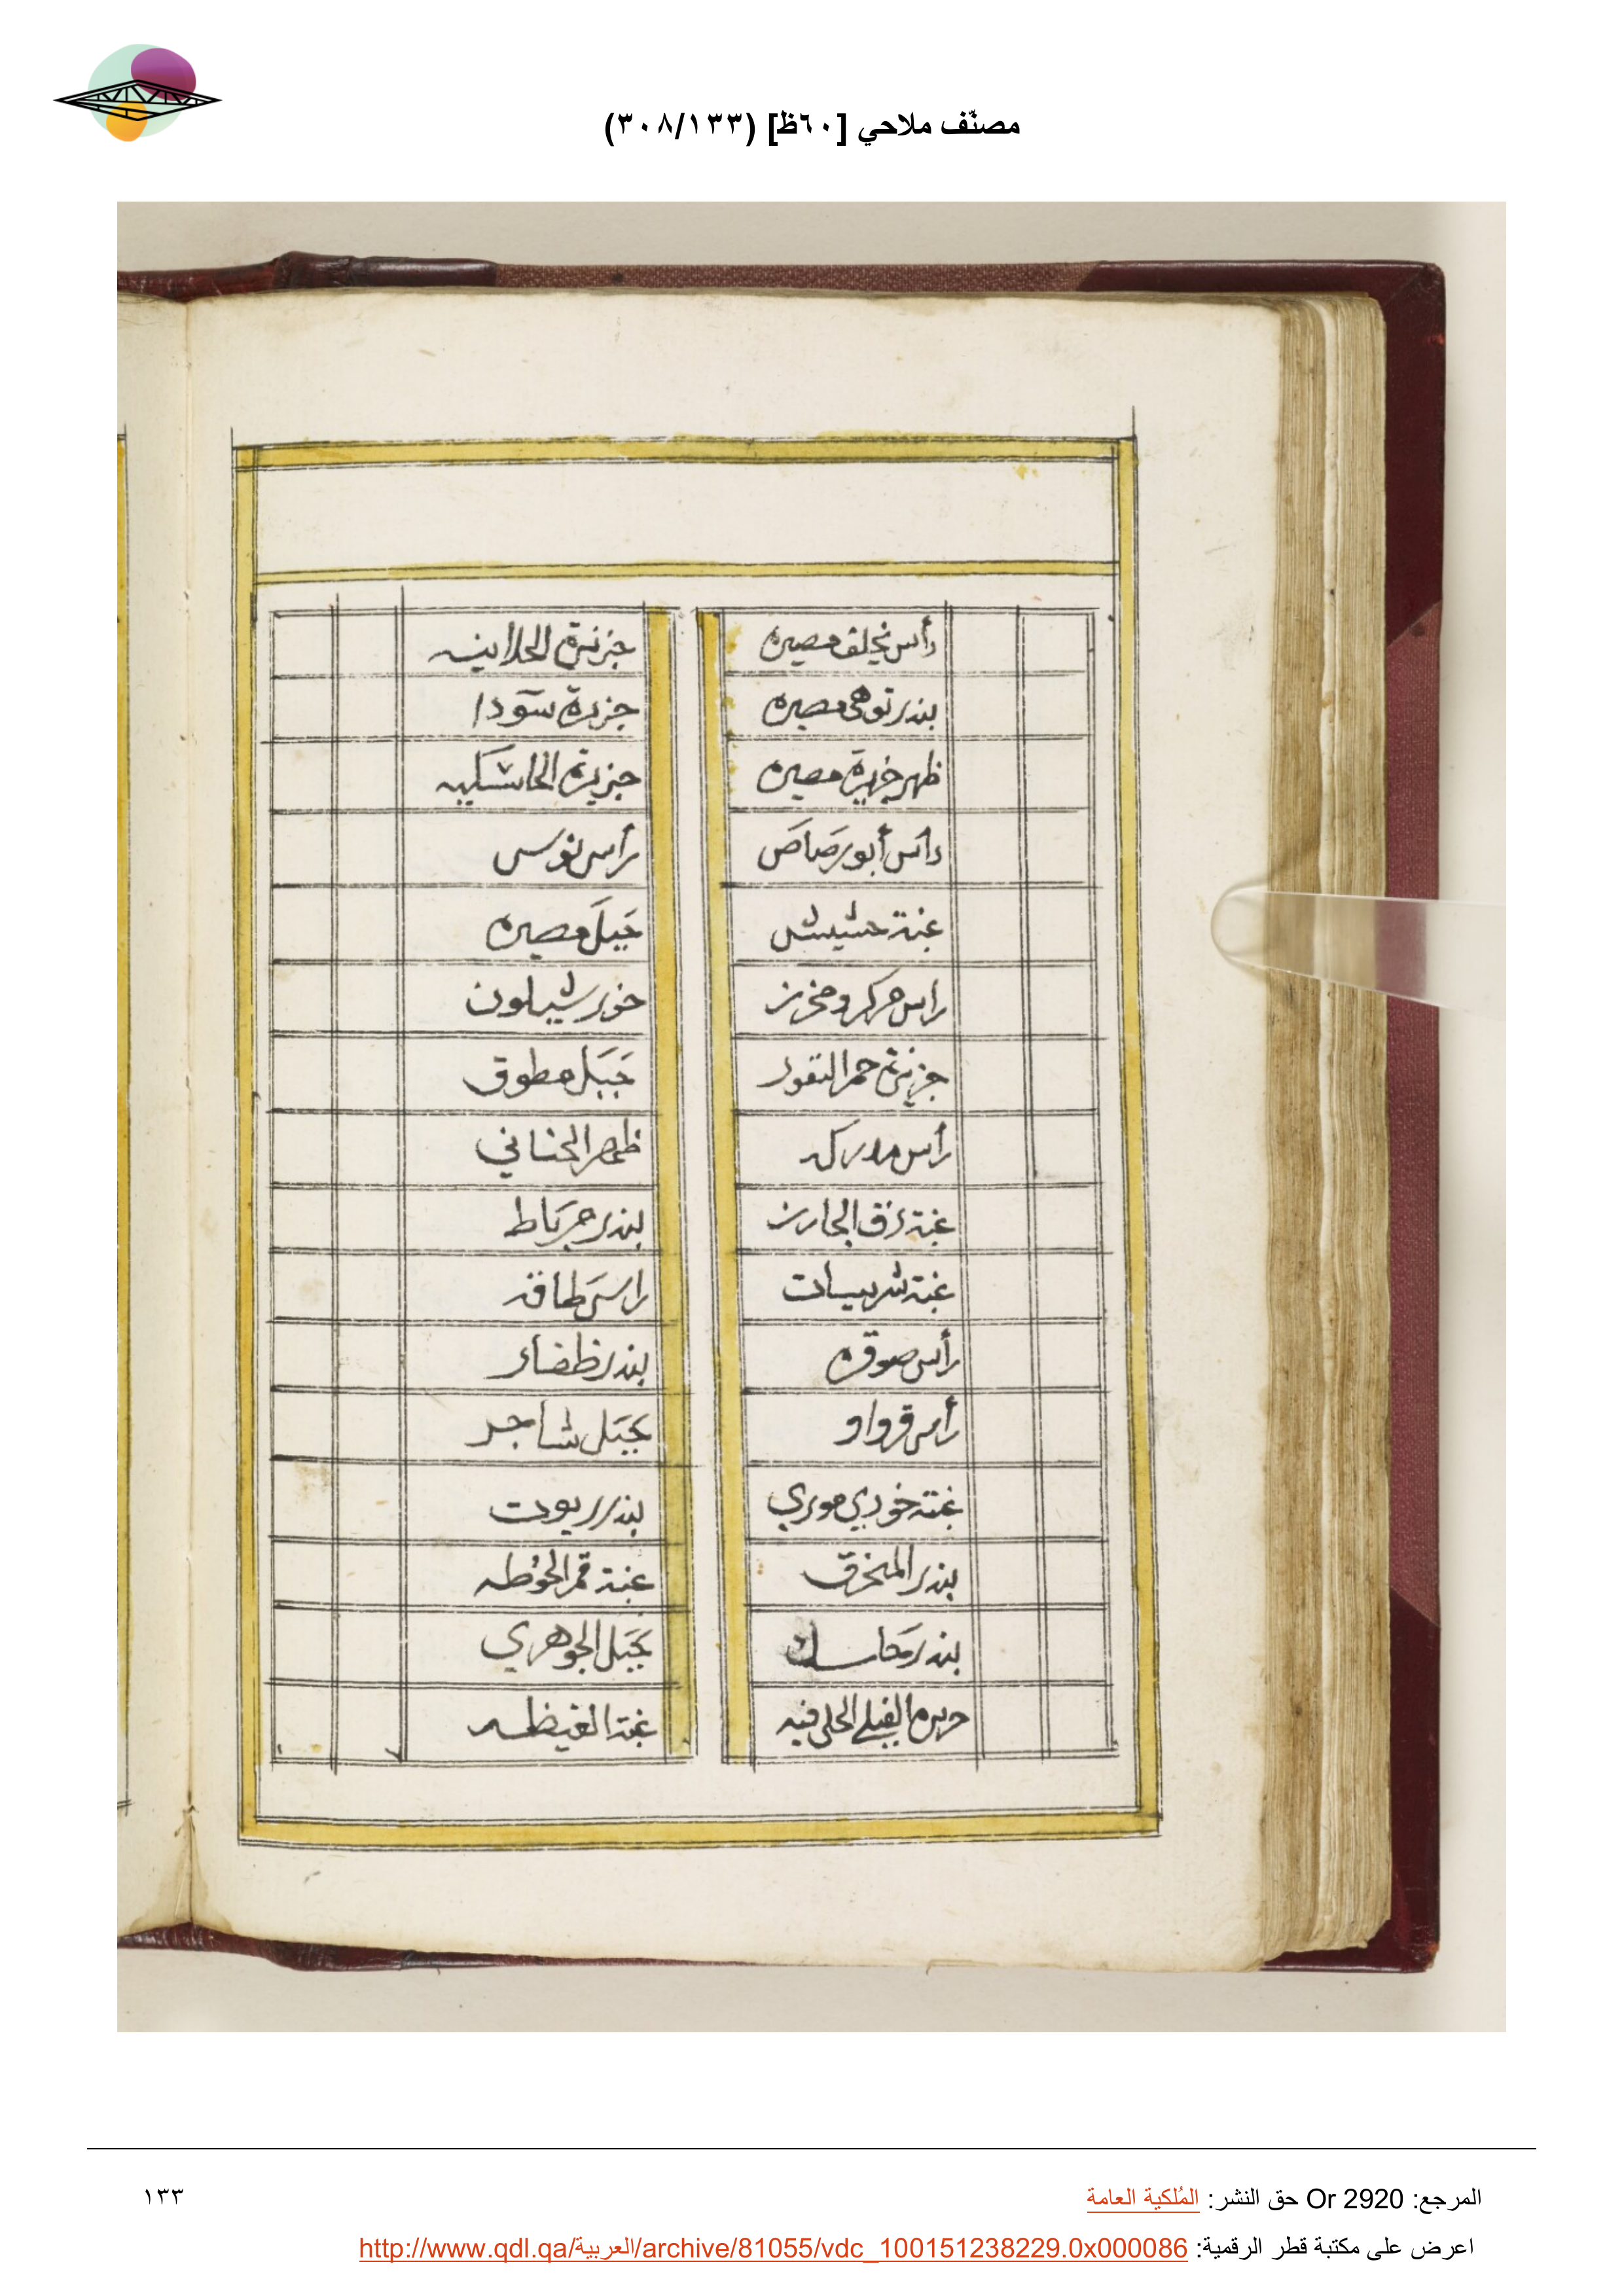 مصنّف ملاحي [٦٠ظ] (٣٠٨/١٣٣)
رأس يخلف مصيره
بندر توهي مصيره
ظهر جزيرة مصيره
راس أبو رصاص
غبة حشيش
راس مركز ومخرز
جزيرة حمر النقور
رأس مدركه
غبة زق الحارز
غبة شربيات
رأس صوقره
رأس قرواو
غبة خوري موري
بندر المخرق
بندر مكاسك
جزيرة
جزيرة الحلانيه
جزيرة سودا
جزيرة الحاسكيه
راس نوس
جبل مصيره
خور شيلون
جبل مطوق
ظهر الحناني
بندر مرباط
راس طاقه
بندر ظفار
جبل شاجر
بندر ريوت
غبة قمر الحوطه
جبل الجوهري
غبة الغيظه
المرجع: Or 2920 حق النشر: المُلكية العامة
١٣٣
اعرض على مكتبة قطر الرقمية: http://www.qdl.qa/العربية/archive/81055/vdc_100151238229.0x000086